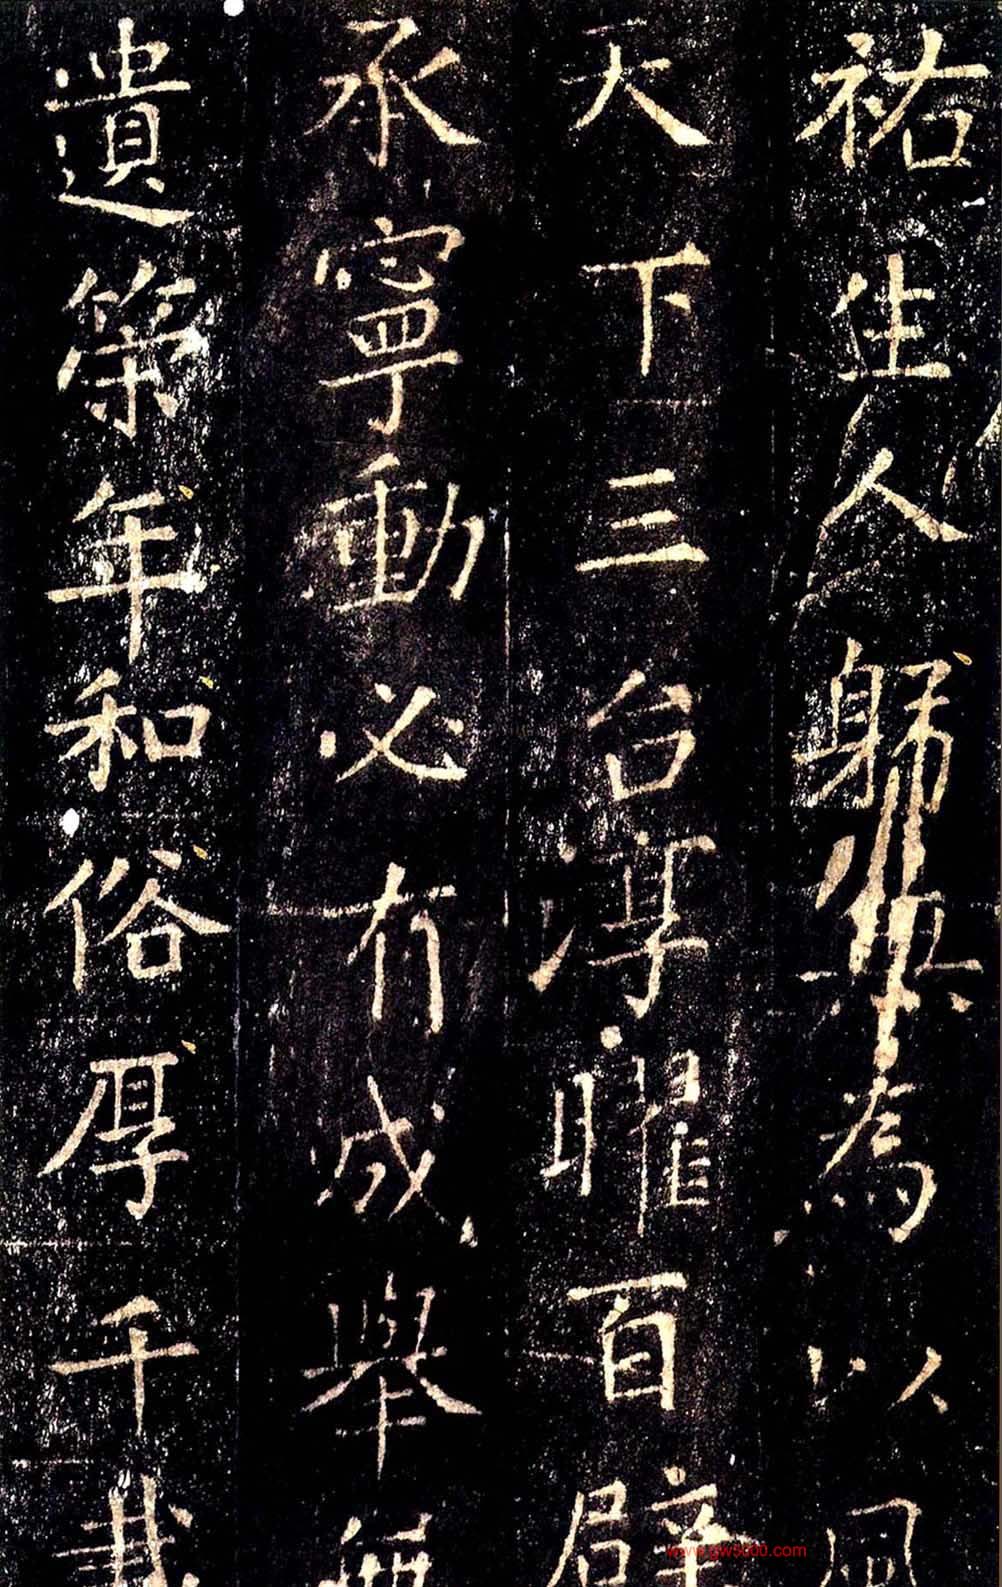 祐生人躬為以風
天下三台淳曜百辟
承寧動必有成舉無
遺策年和俗厚千載
www.gw5000.com